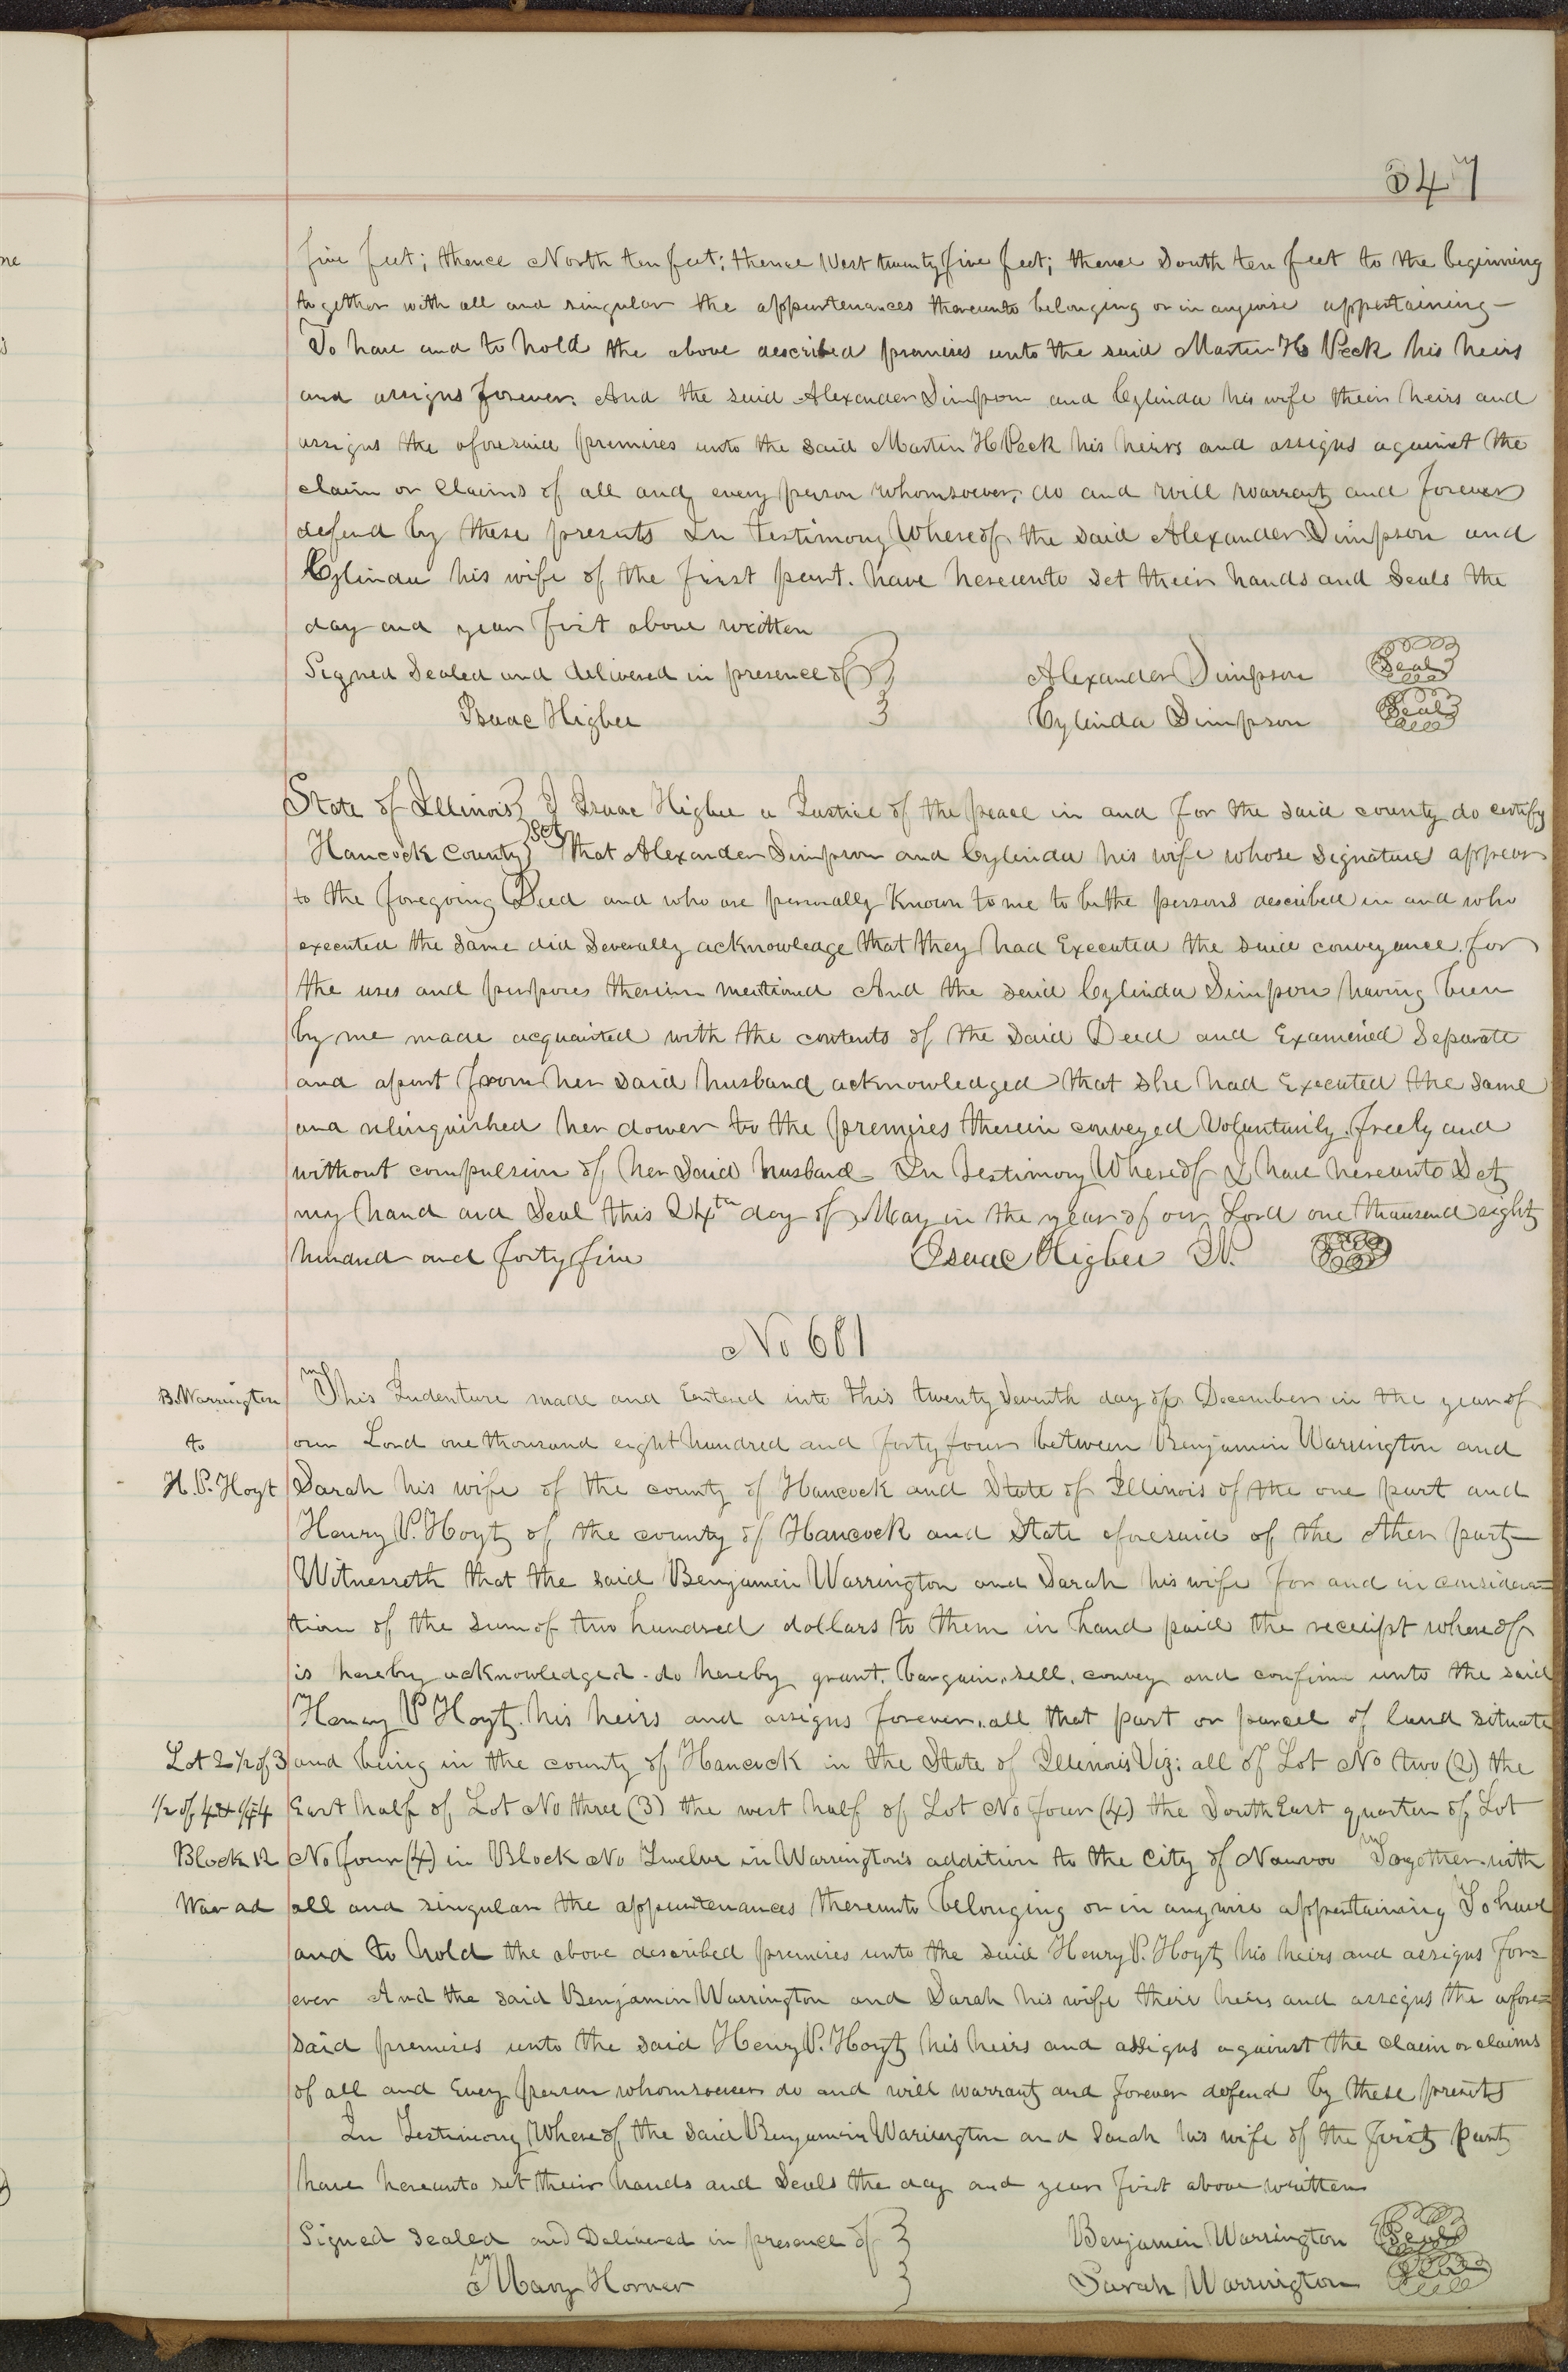 347
five feet; thence North ten feet; thence West twenty five feet; thence South ten feet to the beginning
together with all and singular the appurtenances thereunto belonging or in anywise appertaining—
To have and to hold the above described premises unto the said Martin H Peck his heirs
and assigns forever. And the said Alexander Simpson and Cylinda his wife their heirs and
assigns the aforesaid premises unto the said Martin H Peck his heirs and assigns against the
claim or claims of all and every person whomsoever, do and will warrant and forever
defend by these presents In testimony Whereof the said Alexander Simpson and
Cylinda his wife of the first part. have hereunto set their hands and Seals the
day and year first above written
Signed Sealed and delivered in presence of } Alexander Simpson Seal
Isaac Higbee } Cylinda Simpson Seal
State of Illinois } I Isaac Higbee a Justice of the peace in and for the said county do certify
Hancock County } Sct that Alexander Simpson and Cylinda his wife whose Signatures appear
to the foregoing Deed and who are personally Known to me to be the persons described in and who
executed the same did Severally acknowledge that they had Executed the said conveyance for
the uses and purposes therein mentioned And the said Cylinda Simpson having been
by me made acquainted with the contents of the said Deed and Examined Separate
and apart from her said husband acknowledged that she had Executed the same
and relinquished her dower to the premises therein conveyed Voluntarily, freely and
without compulsion of her said husband— In testimony Whereof I have hereunto Set
my hand and Seal this 24th day of May in the year of our Lord one thousand eight
hundred and forty five Isaac Higbee J.P.
No 681
B. Warrington This Indenture made and Entered into this twenty Seventh day of December in the year of
to our Lord one thousand eight hundred and forty four between Benjamin Warrington and
H. P. Hoyt Sarah his wife of the county of Hancock and State of Illinois of the one part and
Henry P. Hoyt of the county of Hancock and State aforesaid of the other part—
Witnesseth that the said Benjamin Warrington and Sarah his wife for and in considera=
tion of the sum of two hundred dollars to them in hand paid the receipt whereof
is hereby acknowledged. do hereby grant, bargain, sell, convey and confirm unto the said
Henry P Hoyt. his heirs and assigns forever. all that part or parcel of land situate
Lot 2 1/2 of 3 and being in the county of Hancock in the State of Illinois Viz: all of Lot No two (2) the
1/2 of 4 & 1/4 4 East half of Lot No three (3) the west half of Lot No four (4) the South East quarter of Lot
Block 12 No four (4) in Block No Twelve in Warrington's addition to the City of Nauvoo Together with
War ad all and singular the appurtenances thereunto belonging or in anywise appertaining To have
and to hold the above described premises unto the said Henry P. Hoyt his heirs and assigns for=
ever And the said Benjamin Warrington and Sarah his wife their heirs and assigns the afore=
said premises unto the said Henry P. Hoyt his heirs and assigns against the claim or claims
of all and Every person whomsoever do and will warrant and forever defend by these presents
In Testimony Whereof the said Benjamin Warrington and Sarah his wife of the first part
have hereunto set their hands and Seals the day and year first above written
Signed Sealed and Delivered in presence of } Benjamin Warrington Seal
Mary Horner } Sarah Warrington Seal